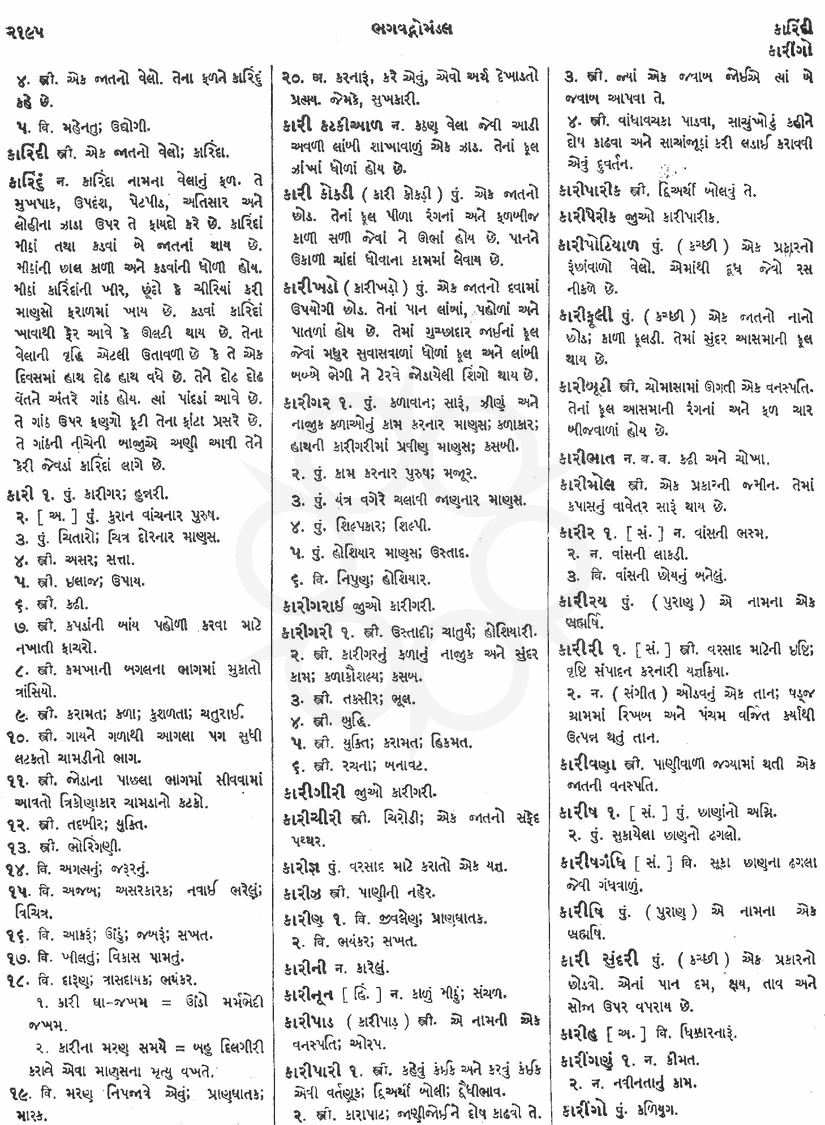 ૨૧૯૫
ભગવદ્ગોમંડલ
કારિંદી
કારીંગો
૪. સ્ત્રી. એક જાતનો વેલો. તેના ફળને કારિંદું
કહે છે.
૫. વિ. મહેનતુ; ઉદ્યોગી.
કારિંદી સ્ત્રી. એક જાતનો વેલો; કારિંદા.
કારિંદું ન. કારિંદા નામના વેલાનું ફળ. તે
મુખપાક, ઉપદંશ, પેટપીડ, અતિસાર અને
લોહીના ઝાડા ઉપર તે ફાયદો કરે છે. કારિંદાં
મીઠાં તથા કડવાં બે જાતનાં થાય છે.
મીઠાંની છાલ કાળી અને કડવાંની ધોળી હોય.
મીઠાં કારિંદાંની ખીર, છૂંદો કે ચીરિયાં કરી
માણસો ફરાળમાં ખાય છે. કડવાં કારિંદાં
ખાવાથી ફેર આવે કે ઊલટી થાય છે. તેના
વેલાની વૃદ્ધિ એટલી ઉતાવળી છે કે તે એક
દિવસમાં હાથ દોઢ હાથ વધે છે. તેને દોઢ દોઢ
વેંતને અંતરે ગાંઠ હોય. ત્યાં પાંદડાં આવે છે.
તે ગાંઠ ઉપર ફણગો ફૂટી તેના ફાંટા પ્રસરે છે.
તે ગાંઠની નીચેની બાજુએ અણી આવી તેને
કેરી જેવડાં કારિંદાં લાગે છે.
કારી ૧. પું. કારીગર; હુન્નરી.
૨. [ અ. ] પું. કુરાન વાંચનાર પુરુષ.
૩. પું. ચિતારો; ચિત્ર દોરનાર માણસ.
૪. સ્ત્રી. અસર; સત્તા.
૫. સ્ત્રી. ઇલાજ; ઉપાય.
૬. સ્ત્રી. કઢી.
૭. સ્ત્રી. કપડાંની બાંય પહોળી કરવા માટે
નખાતી ફાચરો.
૮. સ્ત્રી. કમખાની બગલના ભાગમાં મુકાતો
ત્રાંસિયો.
૯. સ્ત્રી. કરામત; કળા; કુશળતા; ચતુરાઈ.
૧૦. સ્ત્રી. ગાયને ગળાથી આગલા પગ સુધી
લટકતો ચામડીનો ભાગ.
૧૧. સ્ત્રી. જોડાના પાછલા ભાગમાં સીવવામાં
આવતો ત્રિકોણાકાર ચામડાનો કટકો.
૧૨. સ્ત્રી. તદબીર; યુક્તિ.
૧૩. સ્ત્રી. ભોરિંગણી.
૧૪. વિ. અગત્યનું; જરૂરનું.
૧૫. વિ. અજબ; અસરકારક; નવાઈ ભરેલું;
વિચિત્ર.
૧૬. વિ. આકરું; ઊંડું; જબરું; સખત.
૧૭. વિ. ખીલતું; વિકાસ પામતું.
૧૮. વિ. દારુણ; ત્રાસદાયક; ભયંકર.
૧. કારી ઘા-જખમ = ઊંડો મર્મભેદી
જખમ.
૨. કારીના મરણ સમયે = બહુ દિલગીરી
કરાવે એવા માણસના મૃત્યુ વખતે.
૧૯. વિ. મરણ નિપજાવે એવું; પ્રાણઘાતક;
મારક.
૨૦. અ. કરનારું, કરે એવું, એવો અર્થ દેખાડતો
પ્રત્યય. જેમકે, સુખકારી.
કારી કટકીઆળ ન. કઠણ વેલા જેવી આડી
અવળી લાંબી શાખાવાળું એક ઝાડ. તેનાં ફૂલ
ઝાંખાં ધોળાં હોય છે.
કારી કોકડી ( કારી કોકડ઼ી ) પું. એક જાતનો
છોડ. તેનાં ફૂલ પીળા રંગનાં અને ફળબીજ
કાળી સળી જેવાં ને ઊભાં હોય છે. પાનને
ઉકાળી ચાંદાં ધોવાના કામમાં લેવાય છે.
કારીખડો ( કારીખડ઼ો ) પું. એક જાતનો દવામાં
ઉપયોગી છોડ. તેનાં પાન લાંબાં, પહોળાં અને
પાતળાં હોય છે. તેમાં ગુચ્છાદાર જાઈનાં ફૂલ
જેવાં મધુર સુવાસવાળાં ધોળાં ફૂલ અને લાંબી
બબ્બે ભેગી ને ટેરવે જોડાયેલી શિંગો થાય છે.
કારીગર ૧. પું. કળાવાન; સારૂં, ઝીણું અને
નાજુક કળાઓનું કામ કરનાર માણસ; કળાકાર;
હાથની કારીગરીમાં પ્રવીણ માણસ; કસબી.
૨. પું. કામ કરનાર પુરુષ; મજૂર.
૩. પું. યંત્ર વગેરે ચલાવી જાણનાર માણસ.
૪. પું. શિલ્પકાર; શિલ્પી.
૫. પું. હોશિયાર માણસ; ઉસ્તાદ.
૬. વિ. નિપુણ; હોશિયાર.
કારીગરાઈ જુઓ કારીગરી.
કારીગરી ૧. સ્ત્રી. ઉસ્તાદી; ચાતુર્ય; હોશિયારી.
૨. સ્ત્રી. કારીગરનું કળાનું નાજુક અને સુંદર
કામ; કળાકૌશલ્ય; કસબ.
૩. સ્ત્રી. તકસીર; ભૂલ.
૪. સ્ત્રી. બુદ્ધિ.
૫. સ્ત્રી. યુક્તિ; કરામત; હિકમત.
૬. સ્ત્રી. રચના; બનાવટ.
કારીગીરી જુઓ કારીગરી.
કારીચીરી સ્ત્રી. ચિરોડી; એક જાતનો સફેદ
પથ્થર.
કારીજ્ઞ પું. વરસાદ માટે કરાતો એક યજ્ઞ.
કારીઝ સ્ત્રી. પાણીની નહેર.
કારીણ ૧. વિ. જીવલેણ; પ્રાણઘાતક.
૨. વિ. ભયંકર; સખત.
કારીની ન. કારેલું.
કારીનૂન [ હિં. ] ન. કાળું મીઠું; સંચળ.
કારીપાડ ( કારીપાડ઼ ) સ્ત્રી. એ નામની એક
વનસ્પતિ; ઓરપ.
કારીપારી ૧. સ્ત્રી. કહેવું કંઈક અને કરવું કંઈક
એવી વર્તણૂક; દ્વિઅર્થી બોલી; દ્વૈધીભાવ.
૨. સ્ત્રી. કારાપાટ; જાણીજોઈને દોષ કાઢવો તે.
૩. સ્ત્રી. જ્યાં એક જવાબ જોઈએ ત્યાં બે
જવાબ આપવા તે.
૪. સ્ત્રી. વાંધાવચકા પાડવા, સાચુંખોટું કહીને
દોષ કાઢવા અને સાચાંજૂઠાં કરી લડાઈ કરાવવી
એવું દુવર્તન.
કારીપારીક સ્ત્રી. દ્વિઅર્થી બોલવું તે.
કારીપેરીક જુઓ કારીપારીક.
કારીપોટિયાળ પું. ( કચ્છી ) એક પ્રકારનો
રૂંછાંવાળો વેલો. એમાંથી દૂધ જેવો રસ
નીકળે છે.
કારીફૂલી પું. ( કચ્છી ) એક જાતનો નાનો
છોડ; કાળી ફૂલડી. તેમાં સુંદર આસમાની ફૂલ
થાય છે.
કારીબૂટી સ્ત્રી. ચોમાસામાં ઊગતી એક વનસ્પતિ.
તેનાં ફૂલ આસમાની રંગનાં અને ફળ ચાર
બીજવાળાં હોય છે.
કારીભાત ન. બ. વ. કઢી અને ચોખા.
કારીમોલ સ્ત્રી. એક પ્રકારની જમીન. તેમાં
કપાસનું વાવેતર સારૂં થાય છે.
કારીર ૧. [ સં. ] ન. વાંસની ભસ્મ.
૨. ન. વાંસની લાકડી.
૩. વિ. વાંસની છોયનું બનેલું.
કારીરય પું. ( પુરાણ ) એ નામના એક
બ્રહ્મર્ષિ.
કારીરી ૧. [ સં. ] સ્ત્રી. વરસાદ માટેની ઇષ્ટિ;
વૃષ્ટિ સંપાદન કરનારી યજ્ઞક્રિયા.
૨. ન. ( સંગીત ) ઓડવનું એક તાન; ષડ્જ
ગ્રામમાં રિખબ અને પંચમ વર્જિત કર્યાથી
ઉત્પન્ન થતું તાન.
કારીવણા સ્ત્રી. પાણીવાળી જગ્યામાં થતી એક
જાતની વનસ્પતિ.
કારીષ ૧. [ સં. ] પું. છાણાંનો અગ્નિ.
૨. પું. સુકાયેલા છાણનો ઢગલો.
કારીષગંધિ [ સં. ] વિ. સૂકા છાણના ઢગલા
જેવી ગંધવાળું.
કારીષિ પું. ( પુરાણ ) એ નામના એક
બ્રહ્મર્ષિ.
કારી સુંદરી પું. ( કચ્છી ) એક પ્રકારનો
છોડવો. એનાં પાન દમ, ક્ષય, તાવ અને
સોજા ઉપર વપરાય છે.
કારીહ [ અ. ] વિ. ધિક્કારનારૂં.
કારીંગણું ૧. ન. કીમત.
૨. ન. નવીનતાનું કામ.
કારીંગો પું. કળિયુગ.